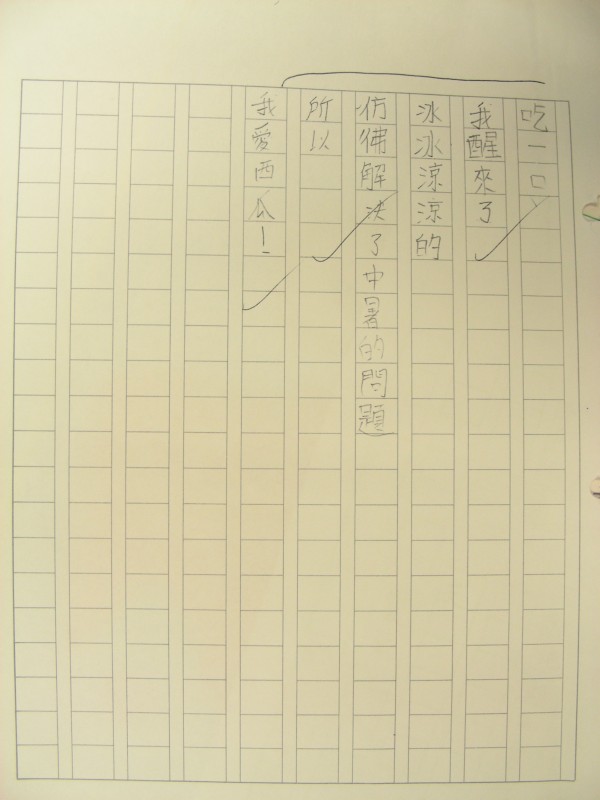 吃一口
我醒來了
冰冰涼涼的
仿彿解決了中暑的問題
所以
我愛西瓜！